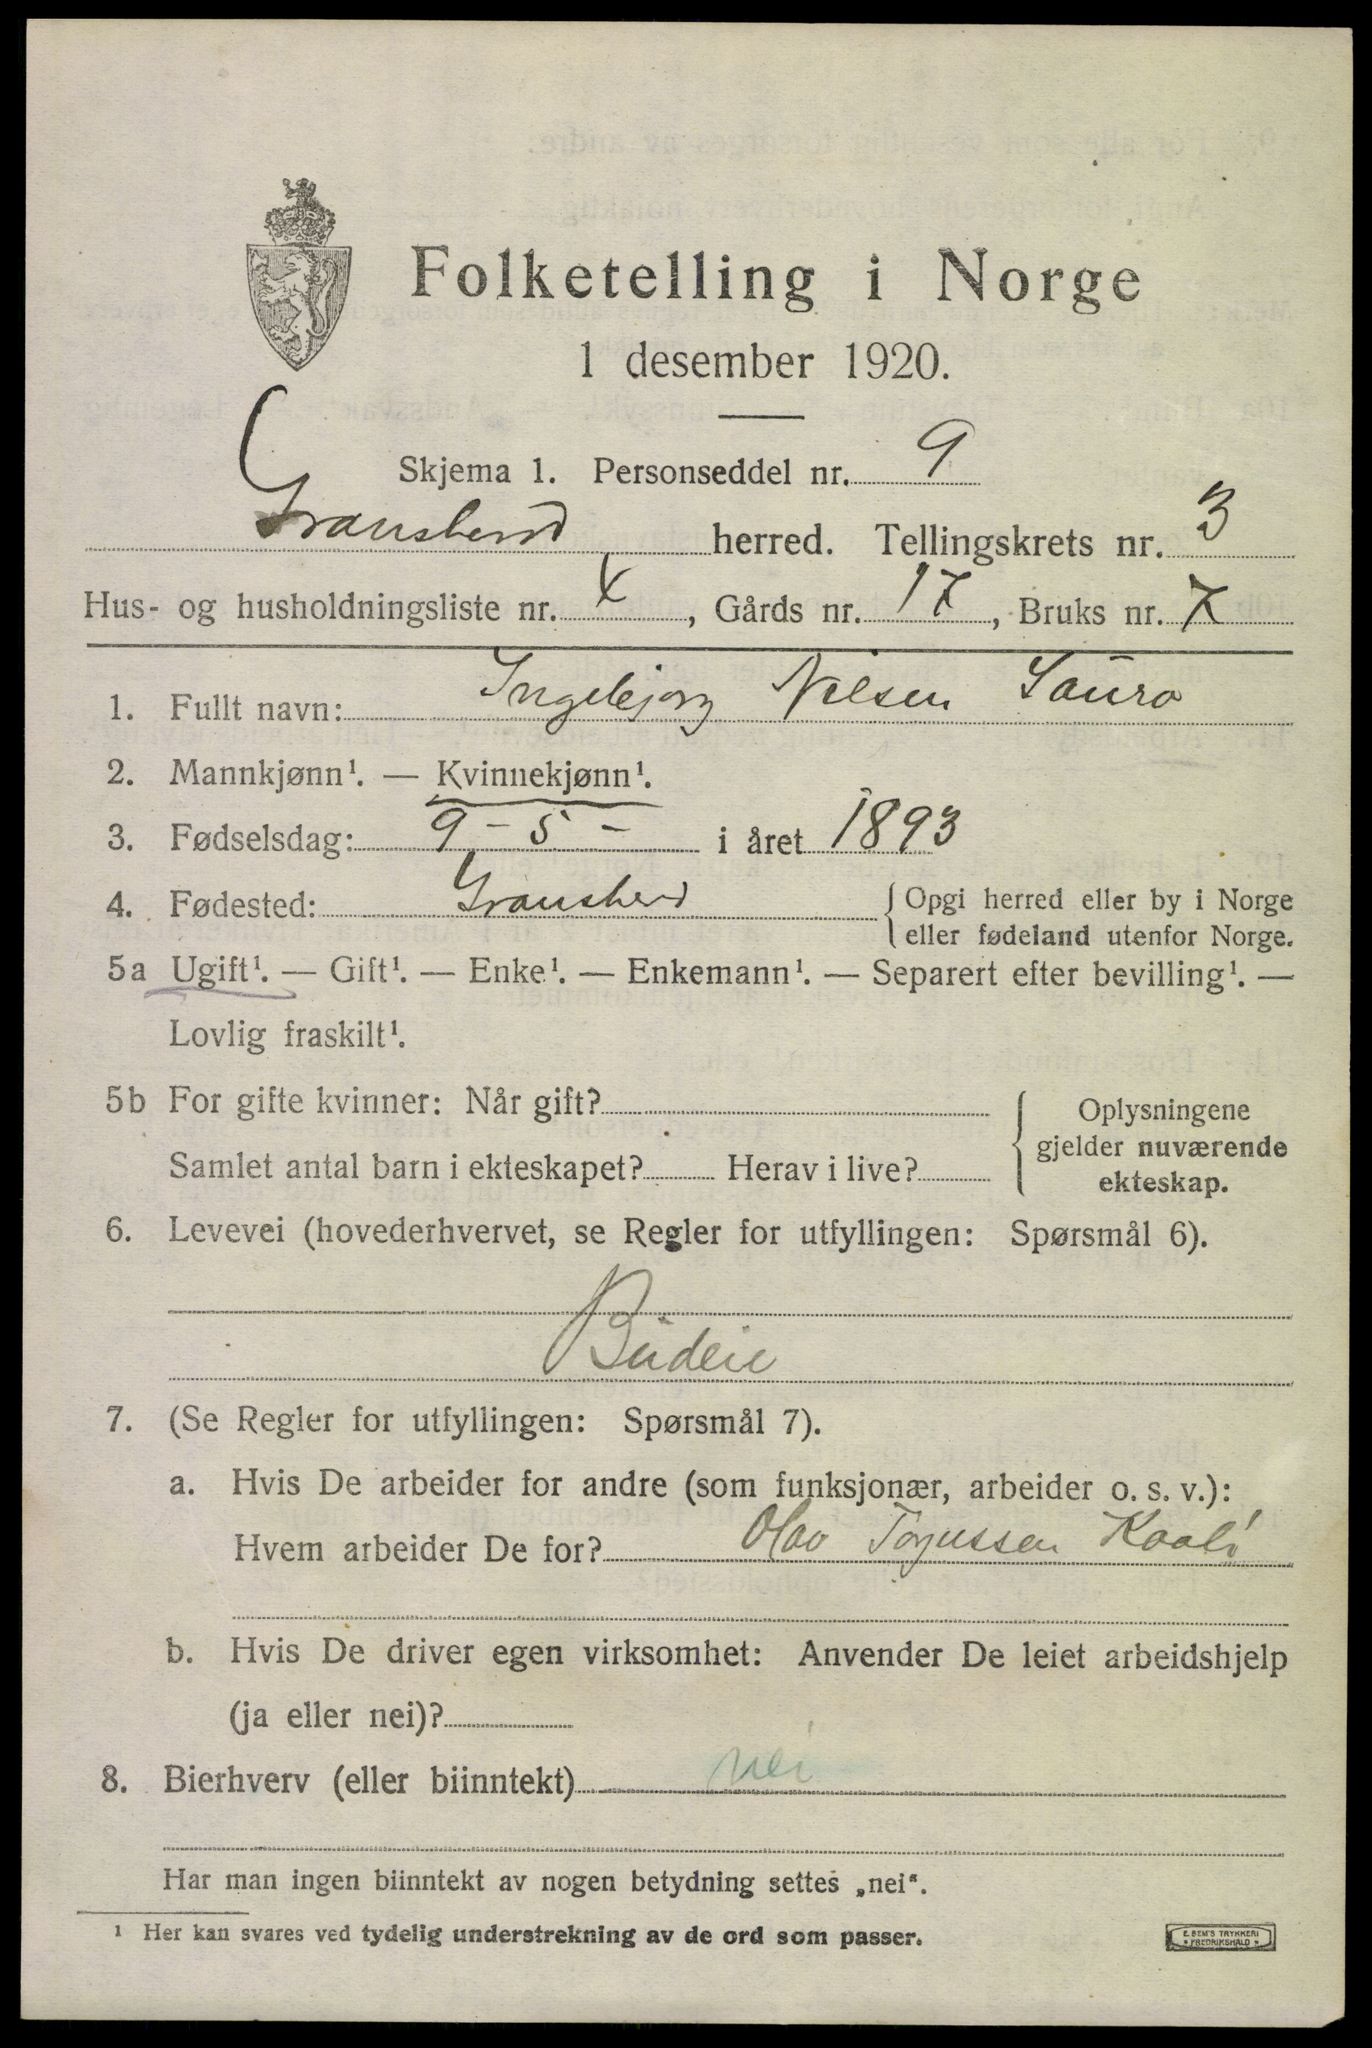 Folketelling i Norge
1 desember 1920.
Skjema 1. Personseddel nr. 9
Gransherd herred. Tellingskrets nr. 3
Hus- og husholdningsliste nr. X, Gårds nr. 17, Bruks nr. 7
1. Fullt navn: Ingebjorg Nilsen Saura
2. Mannkjønn¹. — Kvinnekjønn¹.
3. Fødselsdag: 9 - 5 - i året 1893
4. Fødested: Gransherd {Opgi herred eller by i Norge
eller fødeland utenfor Norge.
5a Ugift¹. — Gift¹. — Enke¹. — Enkemann¹. — Separert efter bevilling¹. —
Lovlig fraskilt¹.
5b For gifte kvinner: Når gift? {Oplysningene
gjelder nuværende
ekteskap.
Samlet antal barn i ekteskapet? Herav i live?
6. Levevei (hovederhvervet, se Regler for utfyllingen: Spørsmål 6).
Budeie
7. (Se Regler for utfyllingen: Spørsmål 7).
a. Hvis De arbeider for andre (som funksjonær, arbeider o. s. v.):
Hvem arbeider De for? Olav Torjussen
b. Hvis De driver egen virksomhet: Anvender De leiet arbeidshjelp
(ja eller nei)?
8. Bierhverv (eller biinntekt) nei
Har man ingen biinntekt av nogen betydning settes „nei".
¹ Her kan svares ved tydelig understrekning av de ord som passer.
E. SEM'S TRYKKERI
FREDRIKSHALD